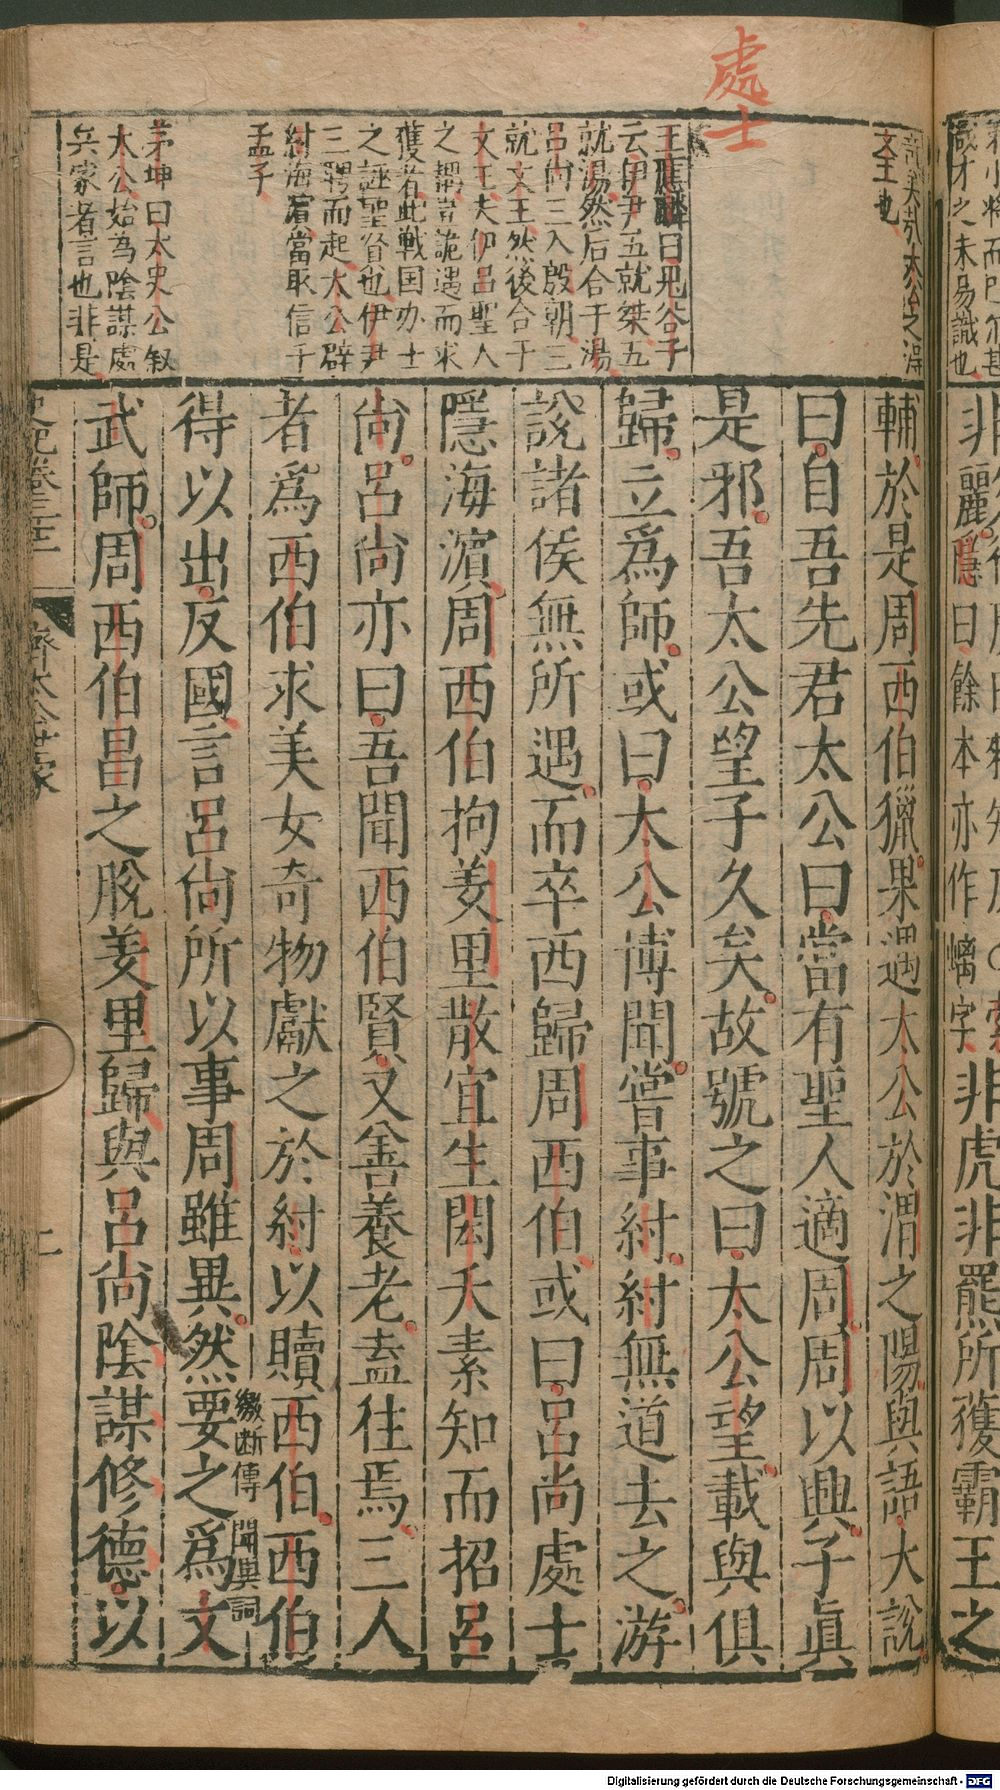 處士
咸才之未易識也
非虎非羆所獲霸王之
隱曰餘本亦作螭字
文王也
王應麟曰鬼谷子
云伊尹五就桀五
就湯然后合于湯
呂尚三入殷朝三
就文王然後合于
文王夫伊呂聖人
之耦豈詭遇而求
獲者此戦国办士
之誣聖賢也伊尹
三聘而起太公辟
紂海濱當取信于
孟子
茅坤曰太史公叙
太公始為陰謀處
兵家者言也非是
輔於是周西伯獵果遇太公於渭之陽與語大說
曰自吾先君太公曰當有聖人適周周以興子眞
是邪吾太公望子久矣故號之曰太公望載與俱
歸立爲師或曰太公博聞嘗事紂紂無道去之游
說諸侯無所遇而卒西歸周西伯或曰呂尚處士
隱海濱周西伯拘羑里散宜生閎夭素知而招呂
尚呂尚亦曰吾聞西伯賢又善養老盍往焉三人
者爲西伯求美女奇物獻之於紂以贖西伯西伯
得以出反國言呂尚所以事周雖異然要之爲文
繳断傳聞異詞
武師周西伯昌之脫羑里歸與呂尚陰謀修德以
史記卷三十二 齊太公世家 二
Digitalisierung gefördert durch die Deutsche Forschungsgemeinschaft - DFG